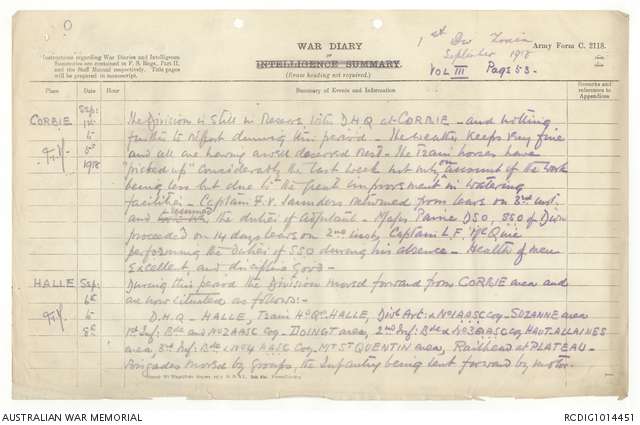 1st Div Train
WAR DIARY
or
INTELLIGENCE SUMMARY.
(Erase heading not required.)
September 1918
Army Form C. 2118.
VOL III Page 53.
Instructions regarding War Diaries and Intelligence
Summaries are contained in F. S. Regs., Part II.
and the Staff Manual respectively. Title pages
will be prepared in manuscript.
Place Date Hour Summary of Events and Information Remarks and
references to
Appendices
CORBIE Sep: The Division is still in Reserve with D.H.Q at CORBIE - and nothing
1st to further to report during this period - The weather keeps very fine
5th and all are having a well deserved rest - The Train horses have
1918 "picked up" considerably the last week not only on account of the work
being less but due to the great improvement in watering
facilities - Captain F.V. Saunders returned from leave on 3rd inst
and assumed the duties of Adjutant - Major Paine DSO, SSO of Divn
proceeded on 14 days leave on 2nd inst, Captain L.F. McQuie
performing the duties of SSO during his absence - Health of men
Excellent, and discipline Good -
HALLE Sep: During this period the Division moved forward from CORBIE area and
6th are now situated as follows:-
to D.H.Q - HALLE, Train Hd Qrs HALLE, Divl Art: & No1 AASC Coy - SUZANNE area
8th 1st Inf: Bde and No2 AASC Coy - DOINGT area, 2nd Inf: Bde & No3 AASC Coy HAUT-ALLAINES
area, 3rd Inf: Bde & No4 AASC Coy Mt ST QUENTIN area, Railhead at PLATEAU -
Brigades moved by Groups, the Infantry being sent forward by motor.
AUSTRALIAN WAR MEMORIAL
RCDIG1014451